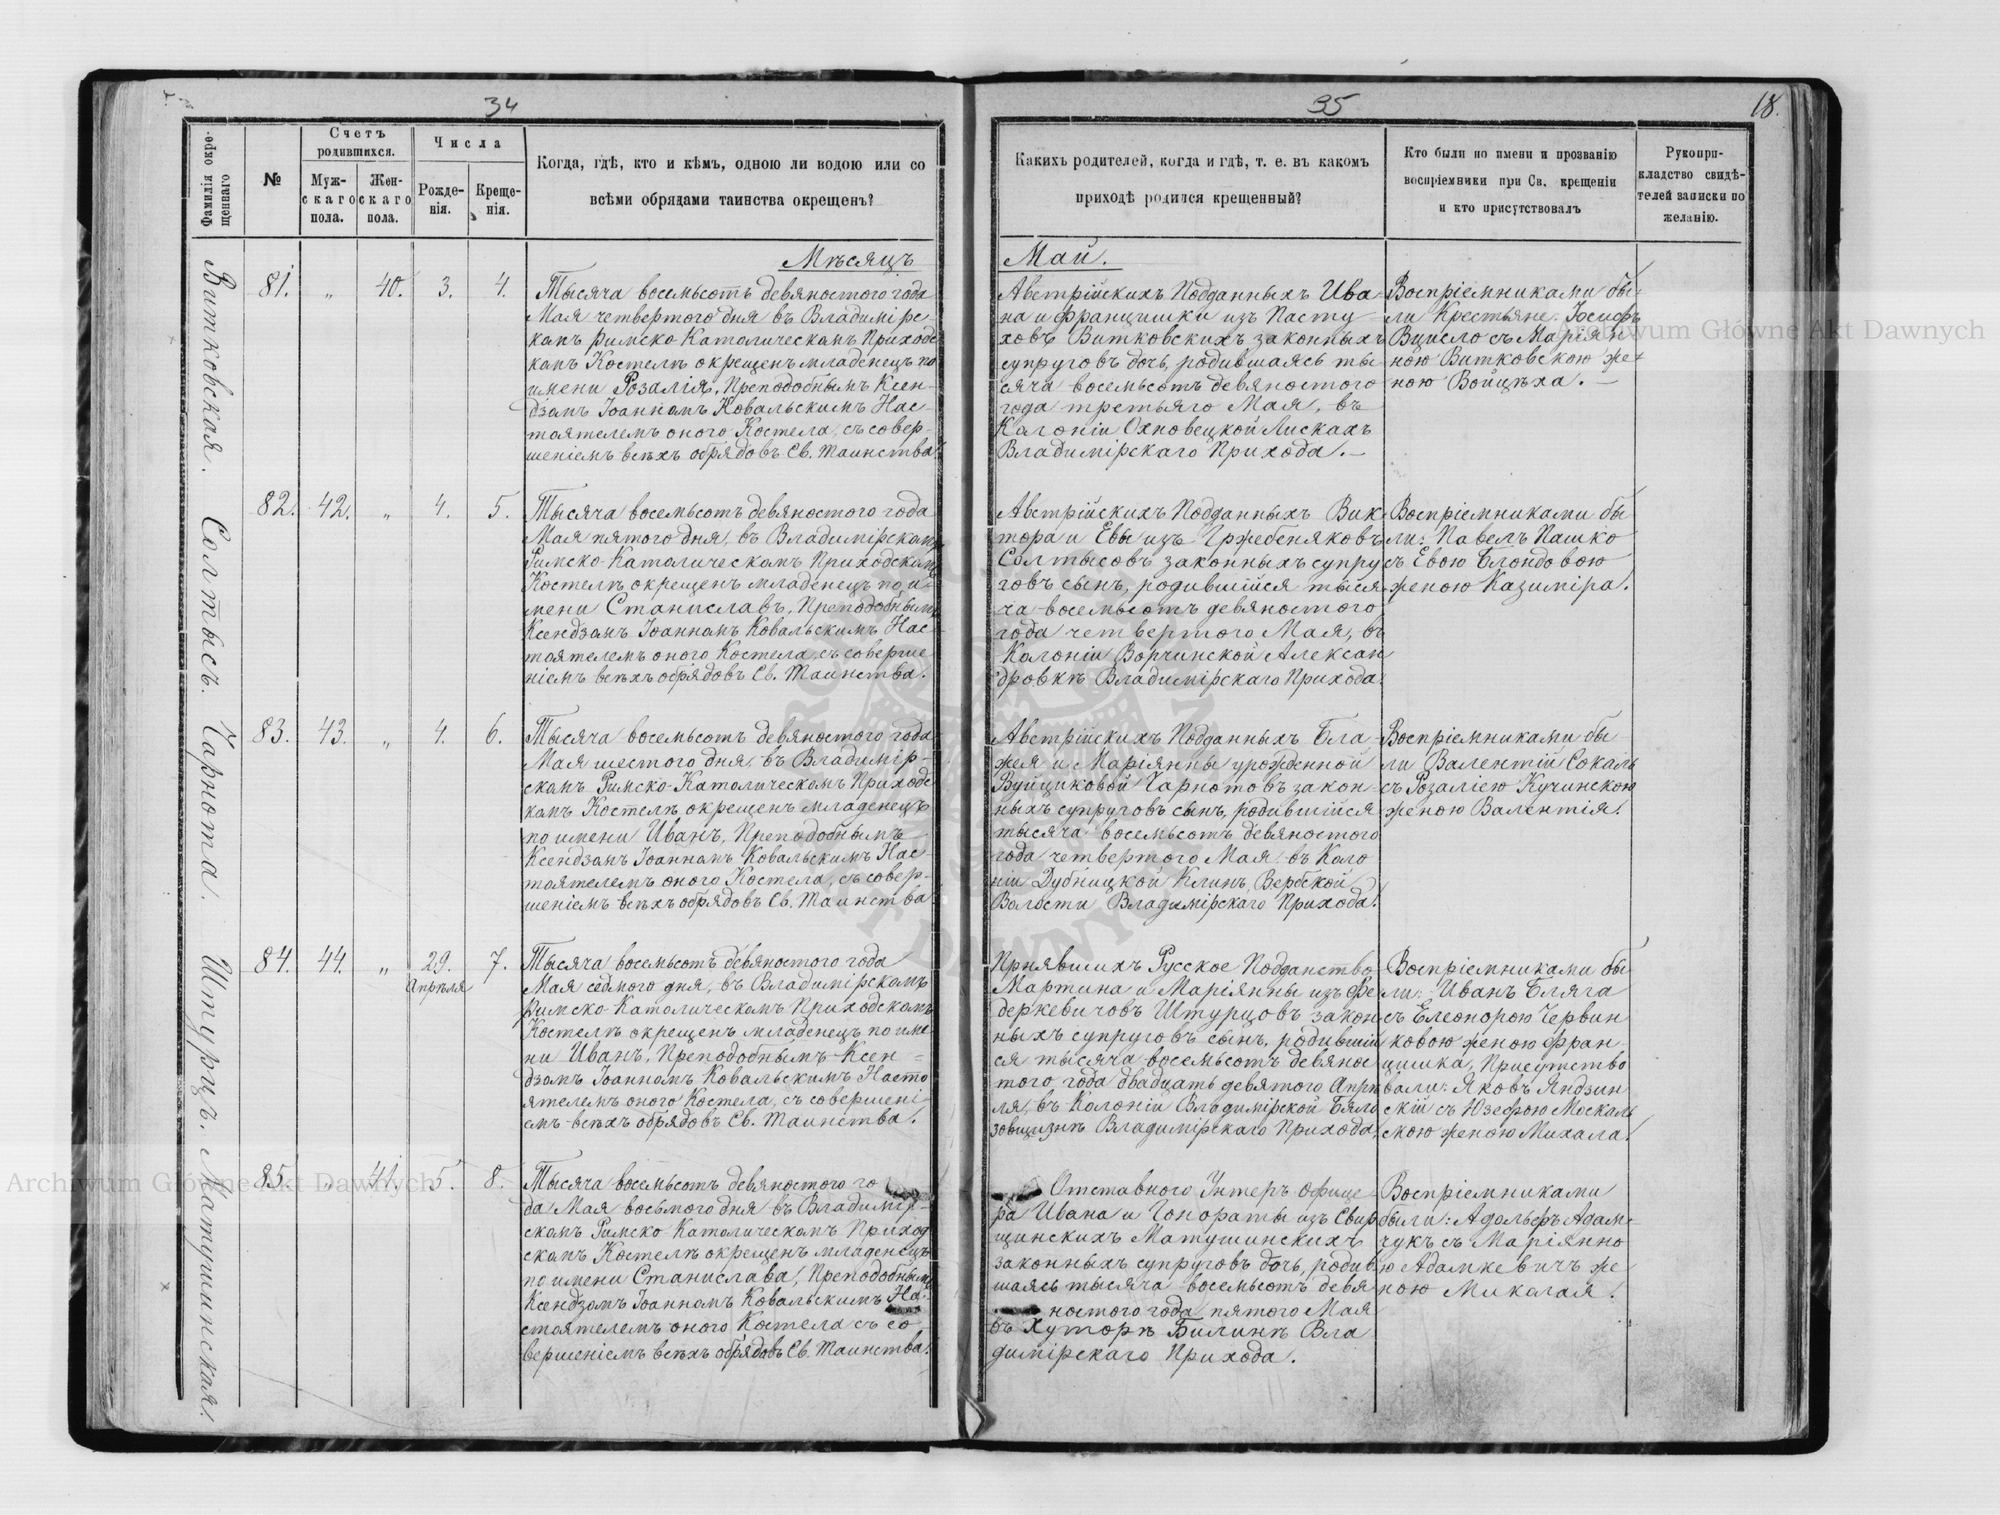 34
35
18.
Фамилія окре-
щеннаго
№
Счетъ
родившихся.
Муж-
скаго
пола.
Жен-
скаго
пола.
Числа
Рожде-
нія.
Креще-
нія.
Когда, гдѣ, кто и кѣмъ, одною ли водою или со
всѣми обрядами таинства окрещенъ?
Какихъ родителей, когда и гдѣ, т. е. въ какомъ
приходѣ родился крещенный?
Кто были по имени и прозванію
воспріемники при Св. крещеніи
и кто присутствовалъ
Рукопри-
кладство свидѣ-
телей записки по
желанію.
Мѣсяцъ
Май.
Витковская.
81. „ 40. 3. 4.
Тысяча восемьсотъ девяностого года
Мая четвертого дня въ Владимірс
комъ Римско Католическомъ Приходс
комъ Костелѣ окрещенъ младенецъ по
имени Розалія, Преподобнымъ Ксен-
дзомъ Іоанномъ Ковальскимъ Нас-
тоятелемъ оного Костела, съ совер-
шеніемъ всѣхъ обрядовъ Св. Таинства.
Австрійскихъ Подданныхъ Ива-
на и Францишки изъ Пасту-
ховъ Витковскихъ законныхъ
супруговъ дочь, родившаясь ты-
сяча восемьсотъ девяностого
года третьяго Мая, въ
Колоніи Охновецкой Лискахъ
Владимірскаго Прихода.
Воспріемниками бы-
ли Крестьяне: Іосифъ
Вцисло съ Маріян-
ною Витковскою же-
ною Войцѣха.
Солтысъ.
82. 42. „ 4. 5.
Тысяча восемьсотъ девяностого года
Мая пятого дня, въ Владимірскомъ
Римско-Католическомъ Приходскомъ
Костелѣ окрещенъ младенецъ по и-
мени Станиславъ, Преподобнымъ
Ксендзомъ Іоанномъ Ковальскимъ Нас-
тоятелемъ оного Костела, съ соверше
ніемъ всѣхъ обрядовъ Св. Таинства.
Австрійскихъ Подданныхъ Вик-
тора и Евы изъ Гржебеняковъ
Солтысовъ законныхъ супру
говъ сынъ, родившійся тыся-
ча восемьсотъ девяностого
года четвертого Мая, въ
Колоніи Ворчинской Алексан
дровкѣ Владимірскаго Прихода.
Воспріемниками бы
ли: Павелъ Пашко
съ Евою Блондовою
женою Казиміра.
Чарнота.
83. 43. „ 4. 6.
Тысяча восемьсотъ девяностого года
Мая шестого дня, въ Владимір-
скомъ Римско-Католическомъ Приходс
комъ Костелѣ окрещенъ младенецъ
по имени Иванъ, Преподобнымъ
Ксендзомъ Іоанномъ Ковальскимъ Нас-
тоятелемъ оного Костела, съ совер-
шеніемъ всѣхъ обрядовъ Св. Таинства
Австрійскихъ Подданныхъ Бла-
жея и Маріянны урожденной
Вуйциковой Чарнотовъ закон-
ныхъ супруговъ сынъ, родившійся
тысяча восемьсотъ девяностого
года четвертого Мая, въ Коло
ніи Дубницкой Клинъ, Вербской
Волости Владимірскаго Прихода.
Воспріемниками бы-
ли Валентій Сокалъ
съ Розаліею Кучинскою
женою Валентія.
Штурцъ.
84. 44. „ 29. 7.
Апрѣля
Тысяча восемьсотъ девяностого года
Мая седмого дня, въ Владимірскомъ
Римско-Католическомъ Приходскомъ
Костелѣ окрещенъ младенецъ по име
ни Иванъ, Преподобнымъ Ксен-
дзомъ Іоанномъ Ковальскимъ Насто
ятелемъ оного Костела, съ совершені
емъ всѣхъ обрядовъ Св. Таинства.
Принявшихъ Русское Подданство
Мартина и Маріянны изъ Фе-
деркевичовъ Штурцовъ закон
ныхъ супруговъ сынъ, родившій
ся тысяча восемьсотъ девянос
того года двадцать девятого Апрѣ
ля, въ Колоніи Владимірской Бяло
зовщизнѣ Владимірскаго Прихода.
Воспріемниками бы
ли: Иванъ Бляга
съ Елеонорою Червин
ковою женою Фран-
цишка, Присутство
вали: Яковъ Яндзин
скій съ Юзефою Москаль
скою женою Михала.
Матушинская.
85. „ 41. 5. 8.
Тысяча восемьсотъ девяностого го
да Мая восьмого дня въ Владимір-
скомъ Римско-Католическомъ Приход
скомъ Костелѣ окрещенъ младенецъ
по имени Станислава, Преподобнымъ
Ксендзомъ Іоанномъ Ковальскимъ На-
стоятелемъ оного Костела съ со-
вершеніемъ всѣхъ обрядовъ Св. Таинства.
Отставного Унтеръ офице-
ра Ивана и Гонораты изъ Свир
щинскихъ Матушинскихъ
законныхъ супруговъ дочь, родив
шаясь тысяча восемьсотъ девя
ностого года пятого Мая
въ Хуторѣ Билинѣ Вла
димірскаго Прихода.
Воспріемниками
были: Адольфъ Адам-
чукъ съ Маріянно
ю Адамкевичъ же
ною Миколая.
Archiwum Główne Akt Dawnych
Archiwum Główne Akt Dawnych